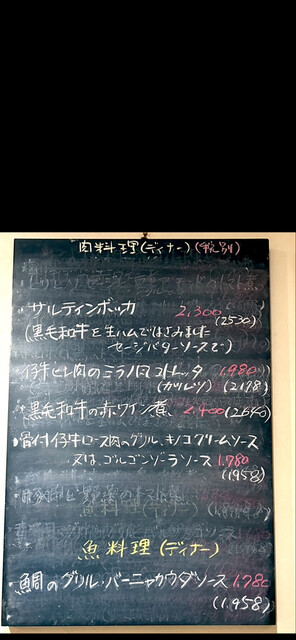 肉料理(ディナー)(税別)
サルティンボッカ 2,300
(黒毛和牛を生ハムではさみました (2530)
セージバターソースで)
仔牛ヒレ肉のミラノ風コトレッタ 1,980
(カツレツ) (2178)
黒毛和牛の赤ワイン煮 2,400 (2640)
骨付仔牛ロース肉のグリル、キノコクリームソース
又は、ゴルゴンゾーラソース 1,780
(1958)
魚料理(ディナー)
鯛のグリル・バーニャカウダソース 1,780
(1,958)